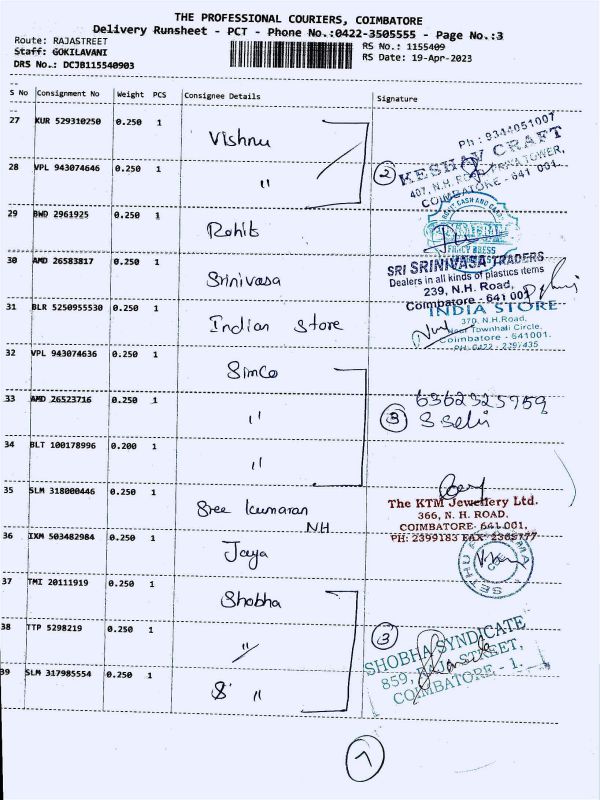 THE PROFESSIONAL COURIERS, COIMBATORE
Delivery Runsheet - PCT - Phone No.:0422-3505555 - Page No.:3
Route: RAJASTREET
RS No.: 1155409
Staff: GOKILAVANI
RS Date: 19-Apr-2023
DRS No.: DCJB115540903
S No Consignment No Weight PCS Consignee Details Signature
27 KUR 529310250 0.250 1 Vishnu
Ph: 9344051007
KESHAV CRAFT
407, N.H. ROAD, TOWER,
COIMBATORE - 641 001.
28 VPL 943074646 0.250 1 "
2
29 BWD 2961925 0.250 1 Rohit
CASH AND CARRY
FANCY DRESS
30 AMD 26583817 0.250 1 Srinivasa
SRI SRINIVASA TRADERS
Dealers in all kinds of plastics items
239, N.H. Road,
Coimbatore - 641 001
31 BLR 5250955530 0.250 1 Indian Store
INDIA STORE
370, N.H.Road,
Near Townhall Circle,
Coimbatore - 641001.
PH: 0422 - 2397435
32 VPL 943074636 0.250 1 Simco
33 AMD 26523716 0.250 1 "
3
6362325959
S Selvi
34 BLT 100178996 0.200 1 "
35 SLM 318000446 0.250 1 Sree Kumaran
NH
The KTM Jewellery Ltd.
366, N. H. ROAD.
COIMBATORE- 641 001,
PH: 2399183 FAX: 2365777
36 IXM 503482984 0.250 1 Jaya
37 TMI 20111919 0.250 1 Shobha
38 TTP 5298219 0.250 1 "
3
SHOBHA SYNDICATE
859, RAJA STREET,
COIMBATORE - 1.
39 SLM 317985554 0.250 1 S "
7